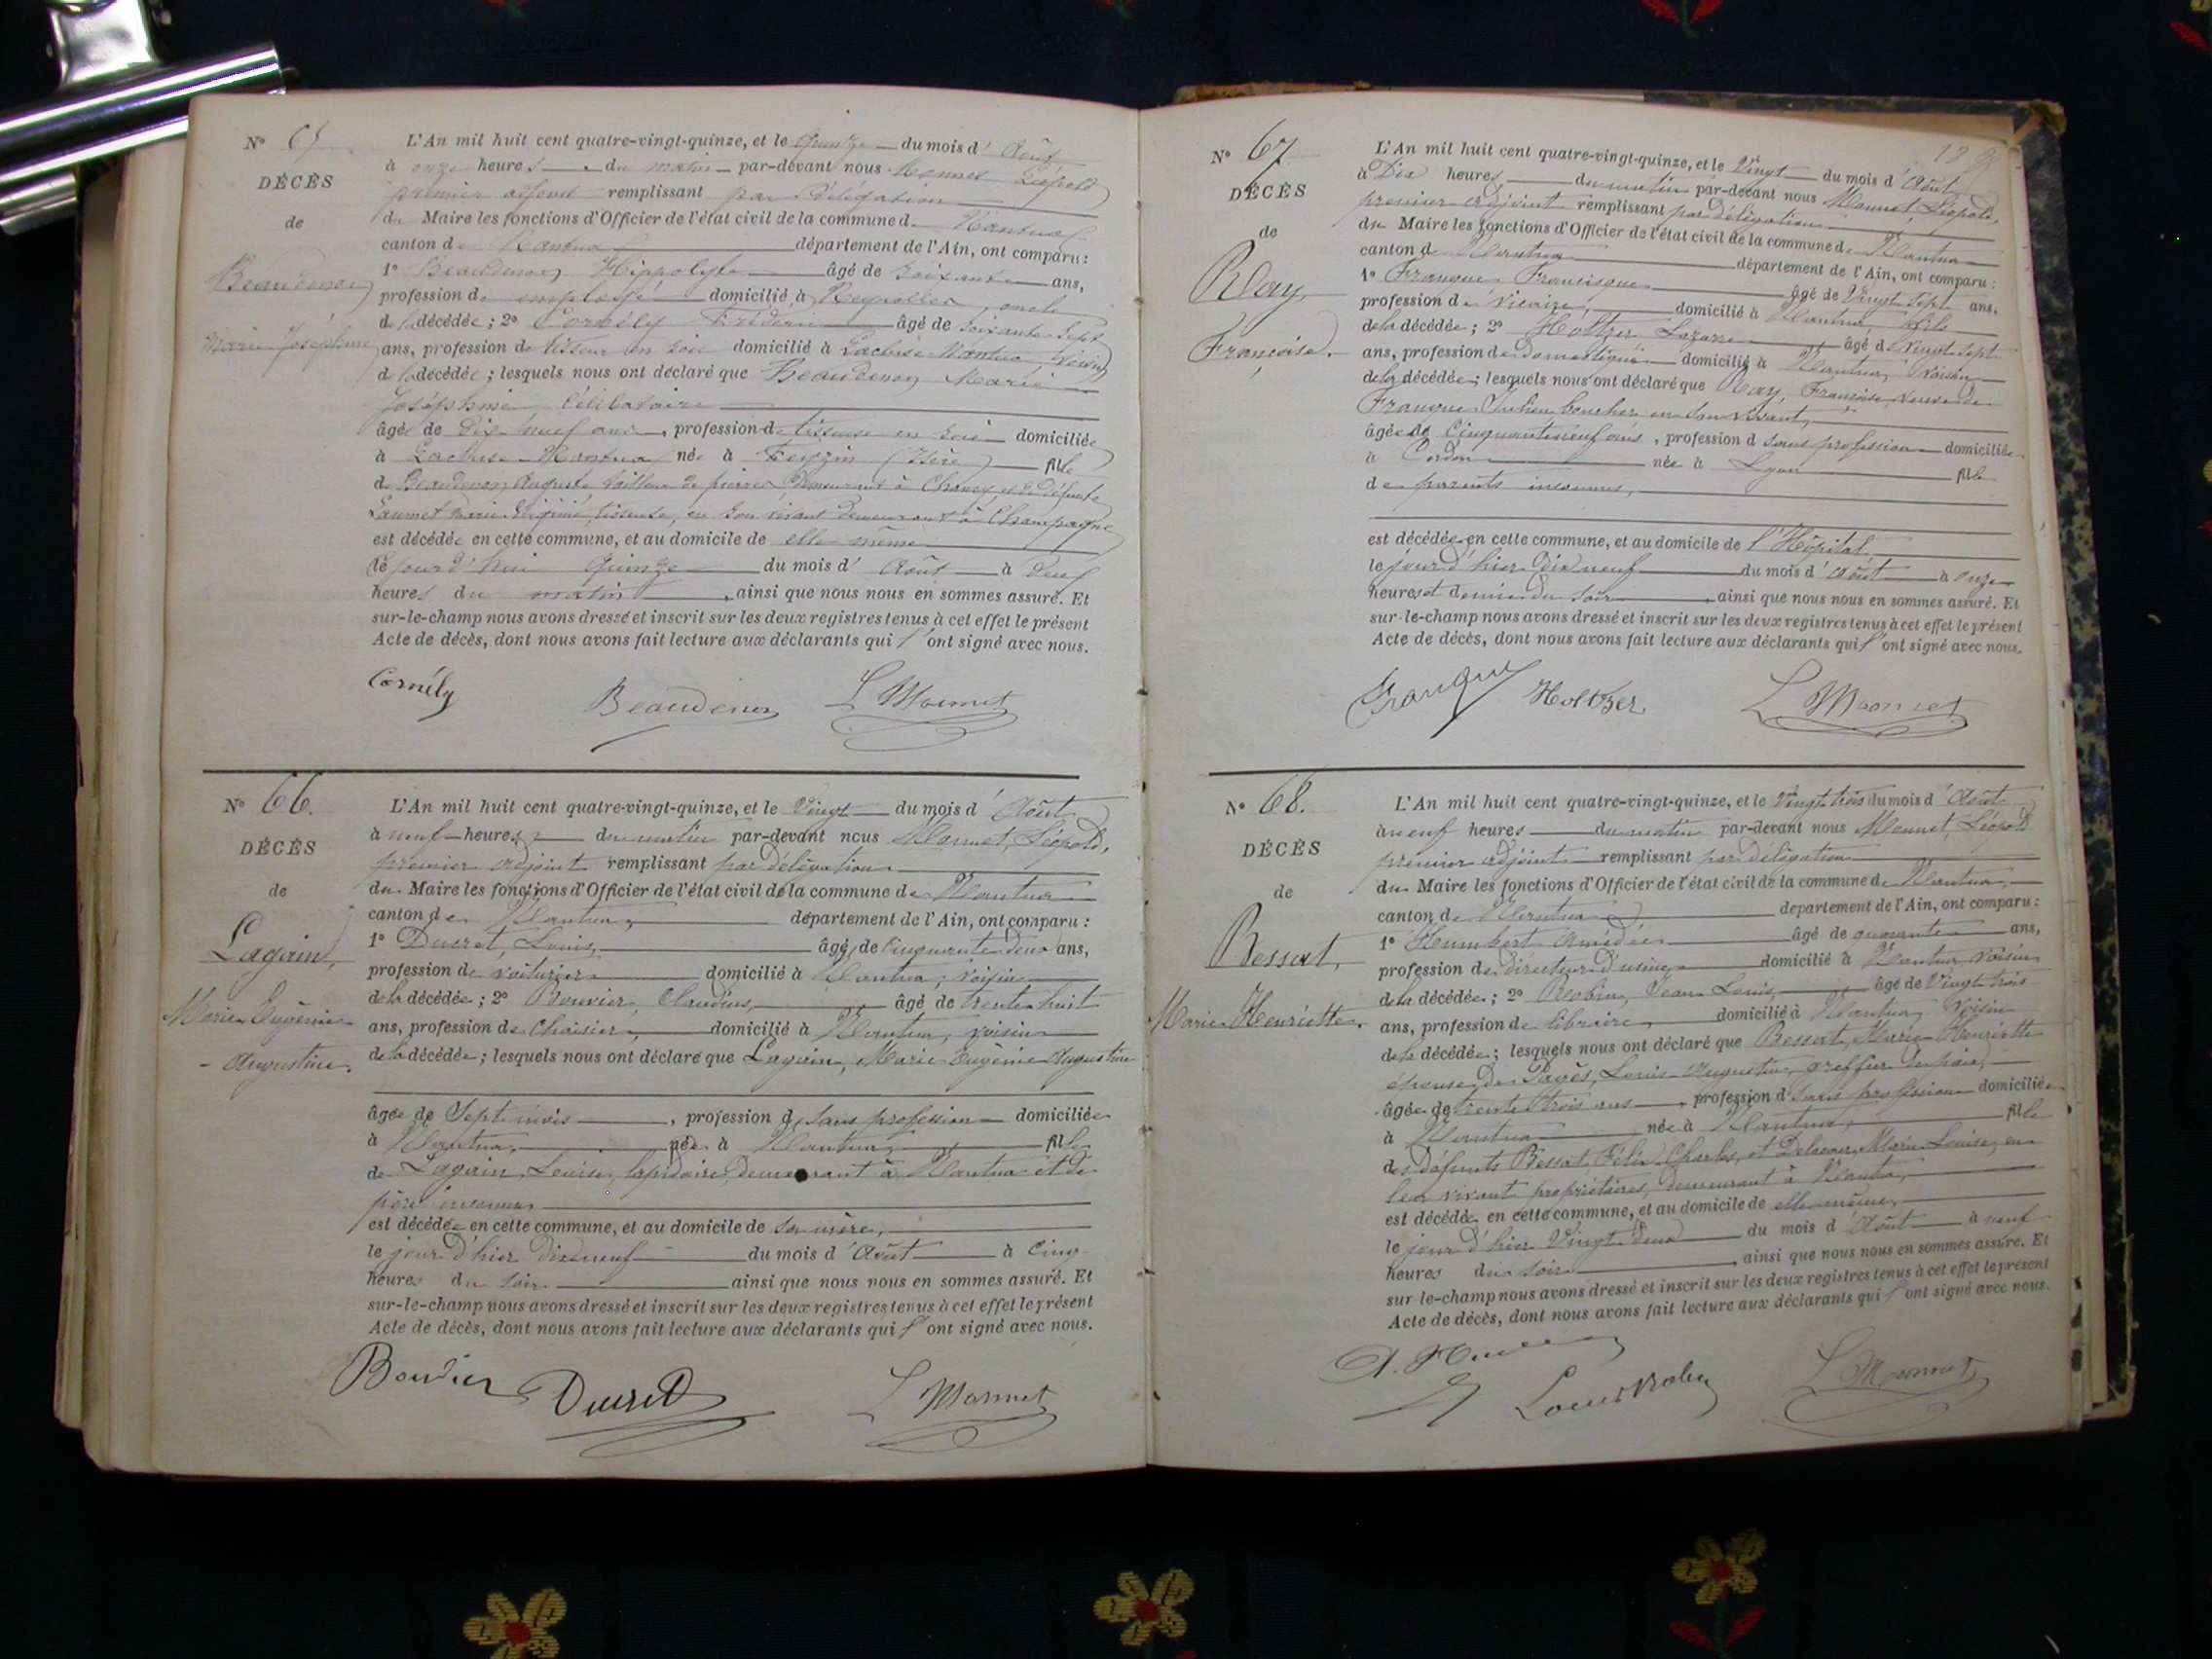 N° 65
DÉCÈS
de
Beaudenon
Marie Joséphine
L'An mil huit cent quatre-vingt-quinze, et le quinze du mois d'Août
à onze heures du matin par-devant nous Monnet Léopold
premier adjoint remplissant par délégation
du Maire les fonctions d'Officier de l'état civil de la commune de Nantua
canton de Nantua département de l'Ain, ont comparu :
1° Beaudenon Hippolyte âgé de soixante ans,
profession de employé domicilié à Neyrolles, oncle
de la décédée ; 2° Cornély Frédéric âgé de soixante sept
ans, profession de tisseur en soie domicilié à Lacluse Nantua, voisin
de la décédée ; lesquels nous ont déclaré que Beaudenon Marie
Joséphine célibataire
âgée de Dix neuf ans, profession de tisseuse en soie domiciliée
à Lacluse-Nantua née à Feyzin (Isère) fille
de Beaudenon Auguste tailleur de pierres demeurant à et de défunte
Marie tisseuse, en son vivant demeurant à Champagne
est décédée en cette commune, et au domicile de elle même
le jour d'hui Quinze du mois d'Août à Deux
heures du matin, ainsi que nous nous en sommes assuré. Et
sur-le-champ nous avons dressé et inscrit sur les deux registres tenus à cet effet le présent
Acte de décès, dont nous avons fait lecture aux déclarants qui l'ont signé avec nous.
Cornély Beaudenon L Monnet
N° 66.
DÉCÈS
de
Lagain,
Marie Eugénie
- Augustine.
L'An mil huit cent quatre-vingt-quinze, et le Vingt du mois d'Août
à neuf heures du matin par-devant nous Monnet, Léopold,
premier adjoint remplissant par délégation
du Maire les fonctions d'Officier de l'état civil de la commune de Nantua
canton de Nantua, département de l'Ain, ont comparu :
1° Ducret, Louis, âgé de Cinquante deux ans,
profession de voiturier domicilié à Nantua, voisin
de la décédée ; 2° Bouvier, Claudius, âgé de trente huit
ans, profession de Chaisier, domicilié à Nantua, voisin
de la décédée ; lesquels nous ont déclaré que Lagain, Marie Eugénie Augustine
âgée de Sept mois, profession d sans profession domiciliée
à Nantua, née à Nantua, fille
de Lagain, Louise, lapidaire, demeurant à Nantua et de
père inconnu
est décédée en cette commune, et au domicile de sa mère,
le jour d'hier Dix neuf du mois d'Août à Cinq
heures du soir ainsi que nous nous en sommes assuré. Et
sur-le-champ nous avons dressé et inscrit sur les deux registres tenus à cet effet le présent
Acte de décès, dont nous avons fait lecture aux déclarants qui l'ont signé avec nous.
Bouvier Ducret L Monnet
N° 67
DÉCÈS
de
Ray,
Françoise.
L'An mil huit cent quatre-vingt-quinze, et le Vingt du mois d'Août
à Dix heures du matin par-devant nous Monnet, Léopold,
premier adjoint remplissant par délégation
du Maire les fonctions d'Officier de l'état civil de la commune de Nantua
canton de Nantua département de l'Ain, ont comparu :
1° Franque Francisque âgé de Vingt sept ans,
profession de vicaire, domicilié à Nantua, fils
de la décédée ; 2° Holtzer Lazare âgé de vingt sept
ans, profession de domestique domicilié à Nantua, voisin
de la décédée ; lesquels nous ont déclaré que Ray, Françoise, veuve de
Franque Julien boucher en son vivant,
âgée de Cinquante neuf ans, profession d sans profession domiciliée
à Cordon née à Lyon fille
de parents inconnus,
est décédée en cette commune, et au domicile de l'Hôpital
le jour d'hier Dix neuf du mois d'Août à onze
heures et demie du soir, ainsi que nous nous en sommes assuré. Et
sur-le-champ nous avons dressé et inscrit sur les deux registres tenus à cet effet le présent
Acte de décès, dont nous avons fait lecture aux déclarants qui l'ont signé avec nous.
Franque Holtzer L Monnet
N° 68.
DÉCÈS
de
Bessat,
Marie Henriette.
L'An mil huit cent quatre-vingt-quinze, et le Vingt trois du mois d'Août
à neuf heures du matin par-devant nous Monnet, Léopold
premier adjoint remplissant par délégation
du Maire les fonctions d'Officier de l'état civil de la commune de Nantua,
canton de Nantua département de l'Ain, ont comparu :
1° Humbert Amédée âgé de quarante ans,
profession de directeur d'usine domicilié à Nantua voisin
de la décédée ; 2° Robin, Jean Louis, âgé de Vingt trois
ans, profession de libraire, domicilié à Nantua, Voisin
de la décédée ; lesquels nous ont déclaré que Bessat, Marie Henriette
épouse de Pagès, Louis Augustin, greffier de paix,
âgée de trente trois ans, profession d sans profession domiciliée
à Nantua née à Nantua, fille
des défunts Bessat, Félix Charles, et Marie Louise, en
leur vivant propriétaires, demeurant à Nantua,
est décédée en cette commune, et au domicile de elle même,
le jour d'hier Vingt deux du mois d'Août à neuf
heures du soir, ainsi que nous nous en sommes assuré. Et
sur-le-champ nous avons dressé et inscrit sur les deux registres tenus à cet effet le présent
Acte de décès, dont nous avons fait lecture aux déclarants qui l'ont signé avec nous.
Louis Robin L Monnet